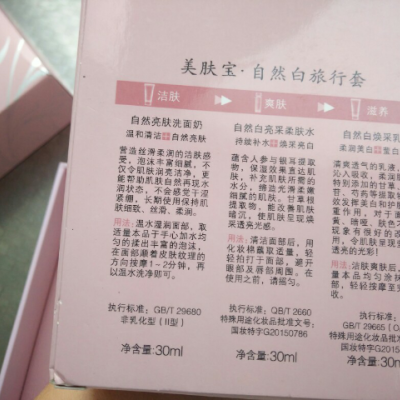 美肤宝·自然白旅行套
洁肤
爽肤
滋养
自然亮肤洗面奶
温和清洁+自然亮肤
营造丝滑柔润的洁肤感
受，泡沫丰富细腻，不
仅令肌肤润亮洁净，更
能帮助肌肤自然再现水
润状态，不会感觉干涩
紧绷，长期使用保持肌
肤细软、丝滑、柔润。
用法：温水湿润面部，取
适量本品于手心加水均
匀的揉出丰富的泡沫，
在面部顺着皮肤纹理的
方向按摩1-2分钟，再
以温水洗净即可。
执行标准：GB/T 29680
非乳化型（II型）
净含量：30ml
自然白亮采柔肤水
持妆补水+焕采亮白
蕴含人参与银耳提取
物，保湿效果直达肌
肤，补充肌肤所需的
水分，缔造光滑柔嫩
细腻的肌肤。甘草根
提取物，能改善肌肤
暗沉，使肌肤呈现焕
采透亮光感。
用法：清洁面部后，用
化妆棉蘸取适量，轻
轻拍打于面部，避开
眼部及唇部周围。在
使用之前，请摇匀。
执行标准：QB/T 2660
特殊用途化妆品批准文号：
国妆特字G20150786
净含量：30ml
自然白焕采乳
柔润美白+蜜白
清爽透气的乳液，
沁入吸收，柔滋
特别添加的甘草
甘、芍药等提取
效发挥美白和护
重作用，对于面
黄、暗哑、肤色不
现象有很好的改
用，令肌肤呈现
透亮光感！
用法：洁肤爽肤后，
量本品均匀涂
部，轻轻按摩至
收。
执行标准：
GB/T 29665（O/
特殊用途化妆品批
国妆特字G20150
净含量：30ml